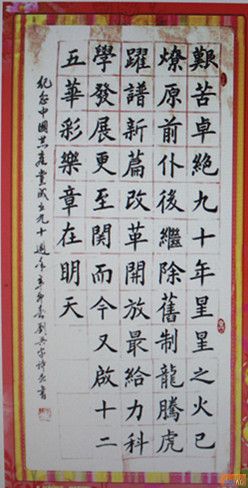 艱苦卓絕九十年星星之火已
燎原前仆後繼除舊制龍騰虎
躍譜新篇改革開放最給力科
學發展更至関而今又啟十二
五華彩樂章在明天
紀念中國共産黨成立九十週年辛卯春劉書